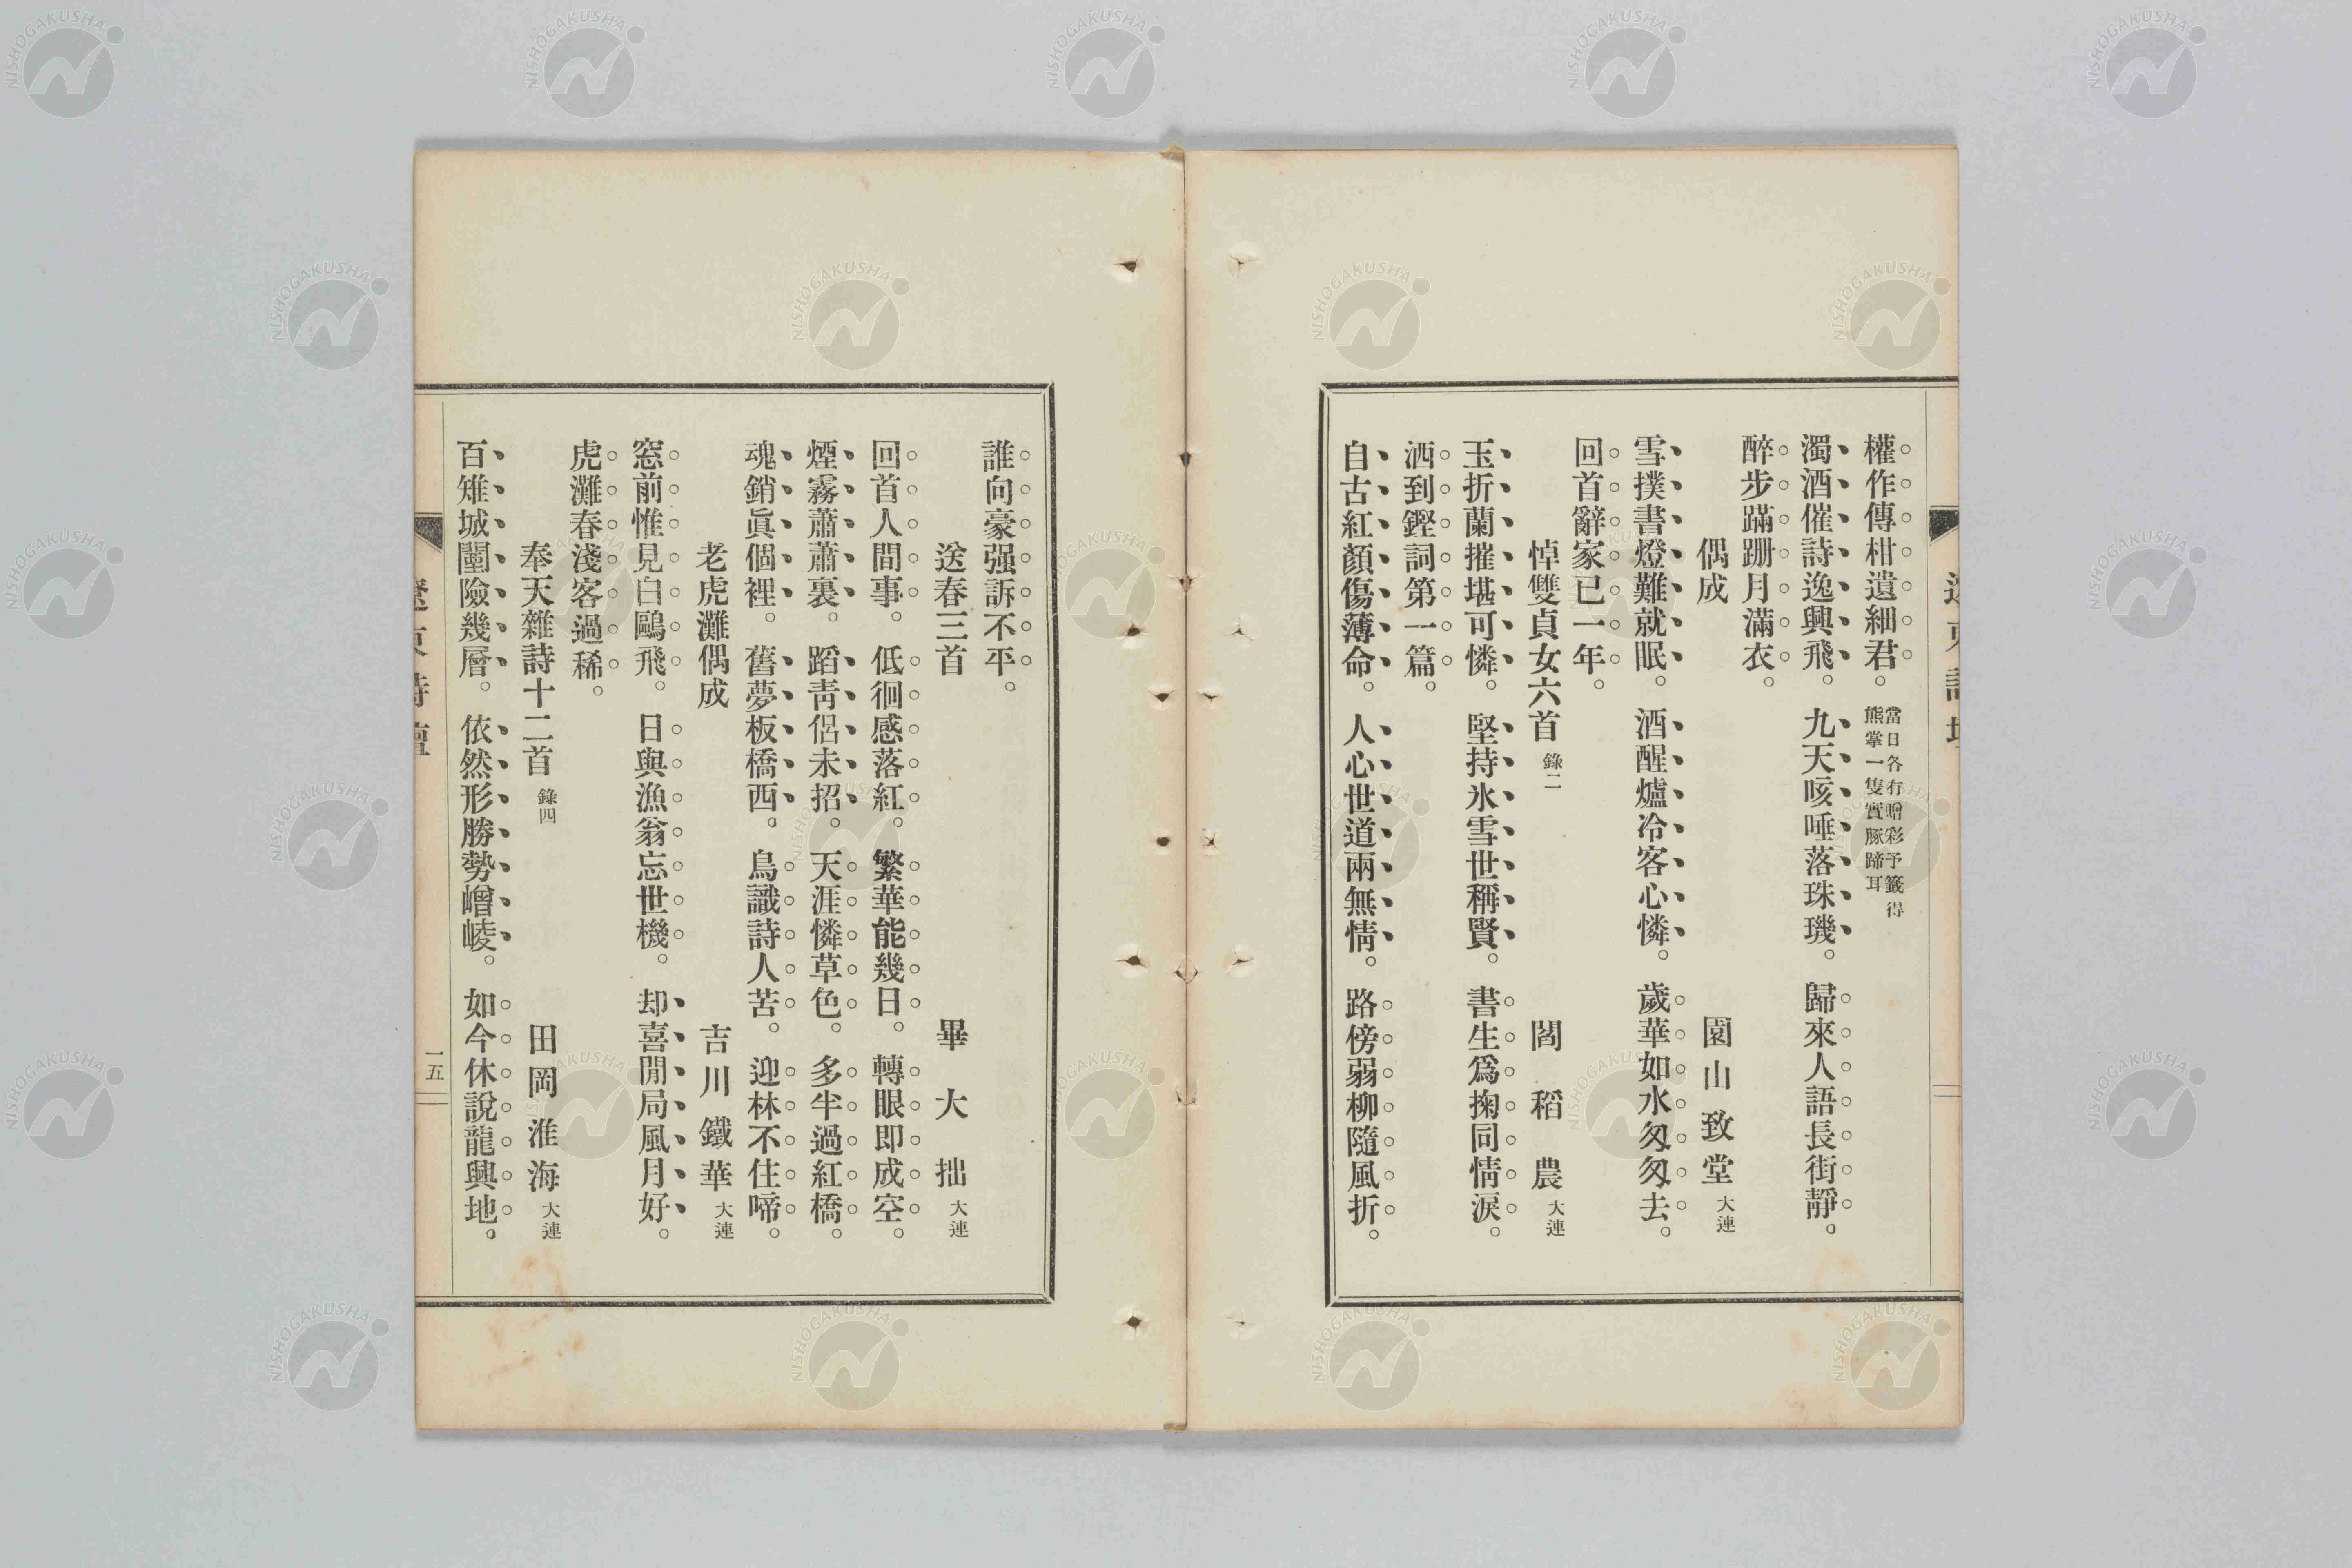 權作傳柑遺細君。當日各有贈彩予籤得
熊掌一隻實豚蹄耳
濁酒催詩逸興飛。九天咳唾落珠璣。歸來人語長街靜。
醉步蹣跚月滿衣。
偶成 園山致堂 大連
雪撲書燈難就眠。酒醒爐冷客心憐。歲華如水匆匆去。
回首辭家已一年。
悼雙貞女六首 錄二 閻稻農 大連
玉折蘭摧堪可憐。堅持氷雪世稱賢。書生爲掬同情淚。
洒到鏗詞第一篇。
自古紅顏傷薄命。人心世道兩無情。路傍弱柳隨風折。
誰向豪强訴不平。
送春三首 畢大拙 大連
回首人間事。低徊感落紅。繁華能幾日。轉眼即成空。
煙霧蕭蕭裏。蹈靑侶未招。天涯憐草色。多半過紅橋。
魂銷眞個裡。舊夢板橋西。鳥識詩人苦。迎林不住啼。
老虎灘偶成 吉川鐵華 大連
窓前惟見白鷗飛。日與漁翁忘世機。却喜閒局風月好。
虎灘春淺客過稀。
奉天雜詩十二首 錄四 田岡淮海 大連
百雉城闉險幾層。依然形勝勢嶒崚。如今休說龍興地。
遼東詩壇
一五
NISHOGAKUSHA